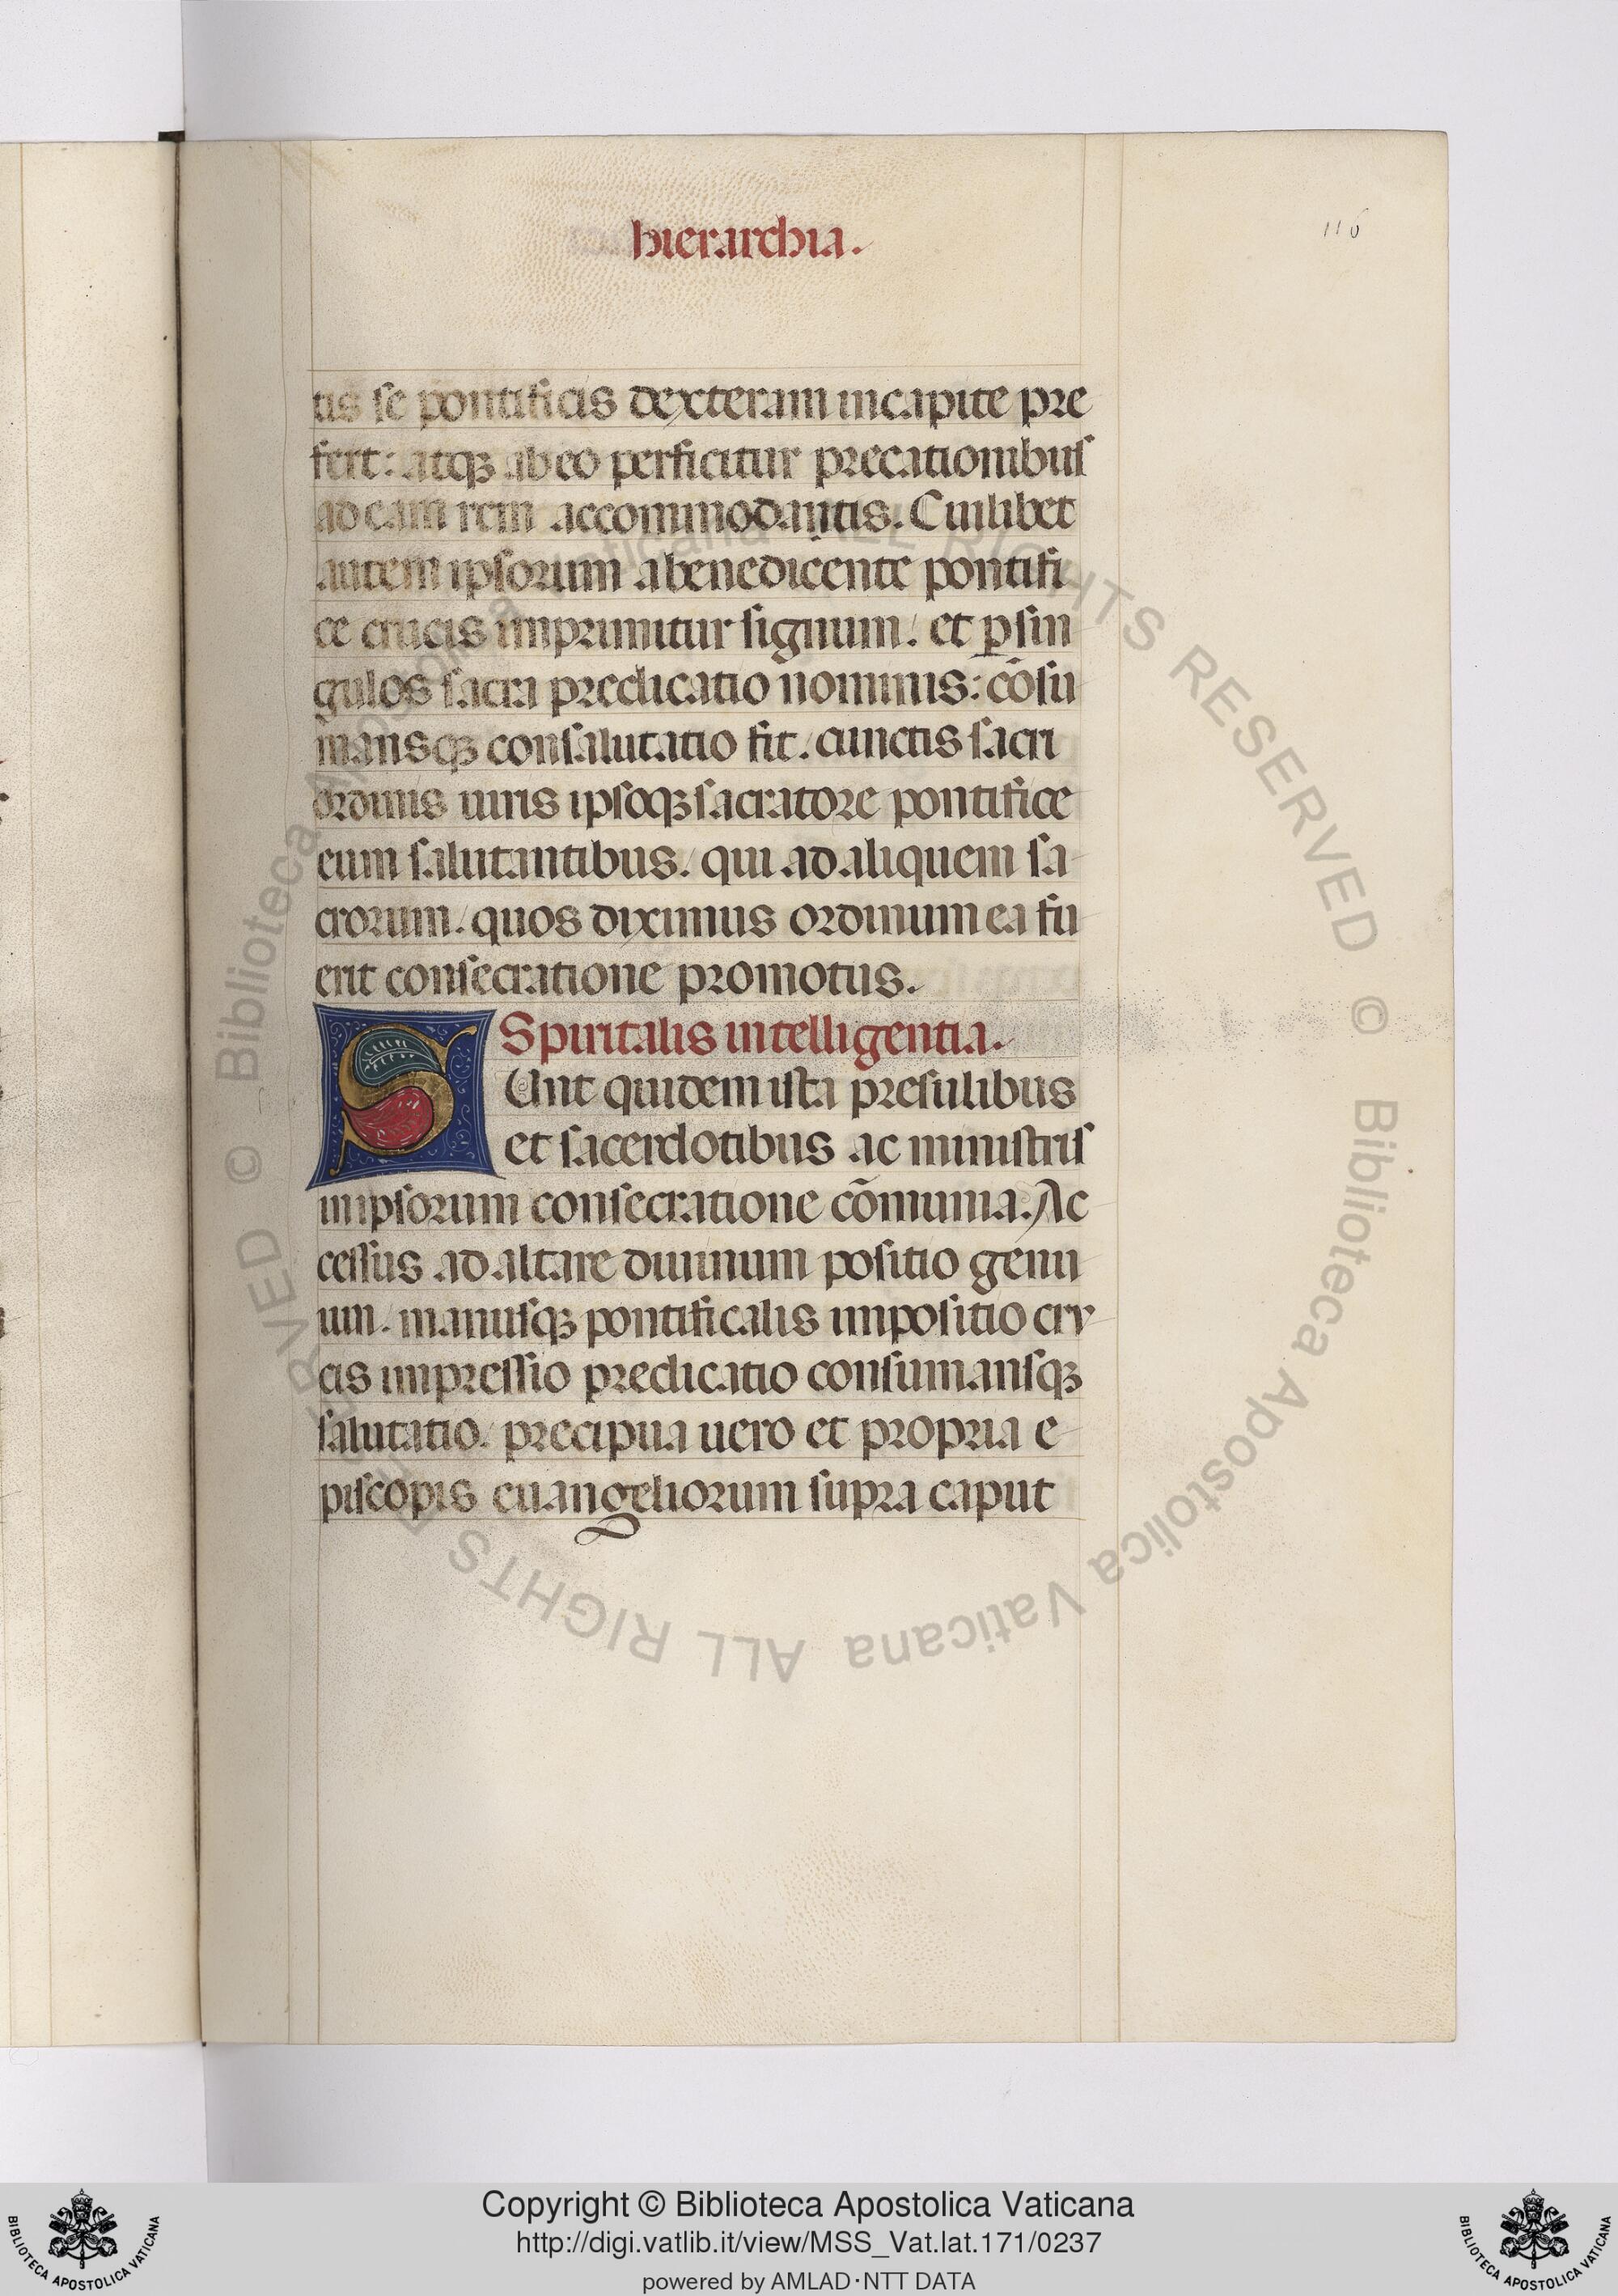 hierarchia.
116
tis se pontificis dexteram in capite pre
fert: atqꝫ ab eo perficitur precationibus
ad eam rem accommodantis. Cuilibet
autem ipsorum a benedicente pontifi
ce crucis imprimitur signum. et ꝑ sin
gulos sacra predicatio nominis: cōsu
mansqꝫ consalutatio fit. cunctis sacri
ordinis uiris ipsoqꝫ sacratore pontifice
eum salutantibus. qui ad aliquem sa
crorum. quos diximus ordinum ea fu
erit consecratione promotus.
Spiritalis intelligentia.
SUnt quidem ista presulibus
et sacerdotibus ac ministris
in ipsorum consecratione cōmunia. Ac
cessus ad altare diuinum positio genu
um. manusqꝫ pontificalis impositio cru
cis impressio predicatio consumansqꝫ
salutatio. precipua uero et propria e
piscopis euangeliorum supra caput
© Biblioteca Apostolica Vaticana ALL RIGHTS RESERVED © Biblioteca Apostolica Vaticana ALL RIGHTS RESERVED
Copyright © Biblioteca Apostolica Vaticana
http://digi.vatlib.it/view/MSS_Vat.lat.171/0237
powered by AMLAD·NTT DATA
BIBLIOTECA APOSTOLICA VATICANA
BIBLIOTECA APOSTOLICA VATICANA